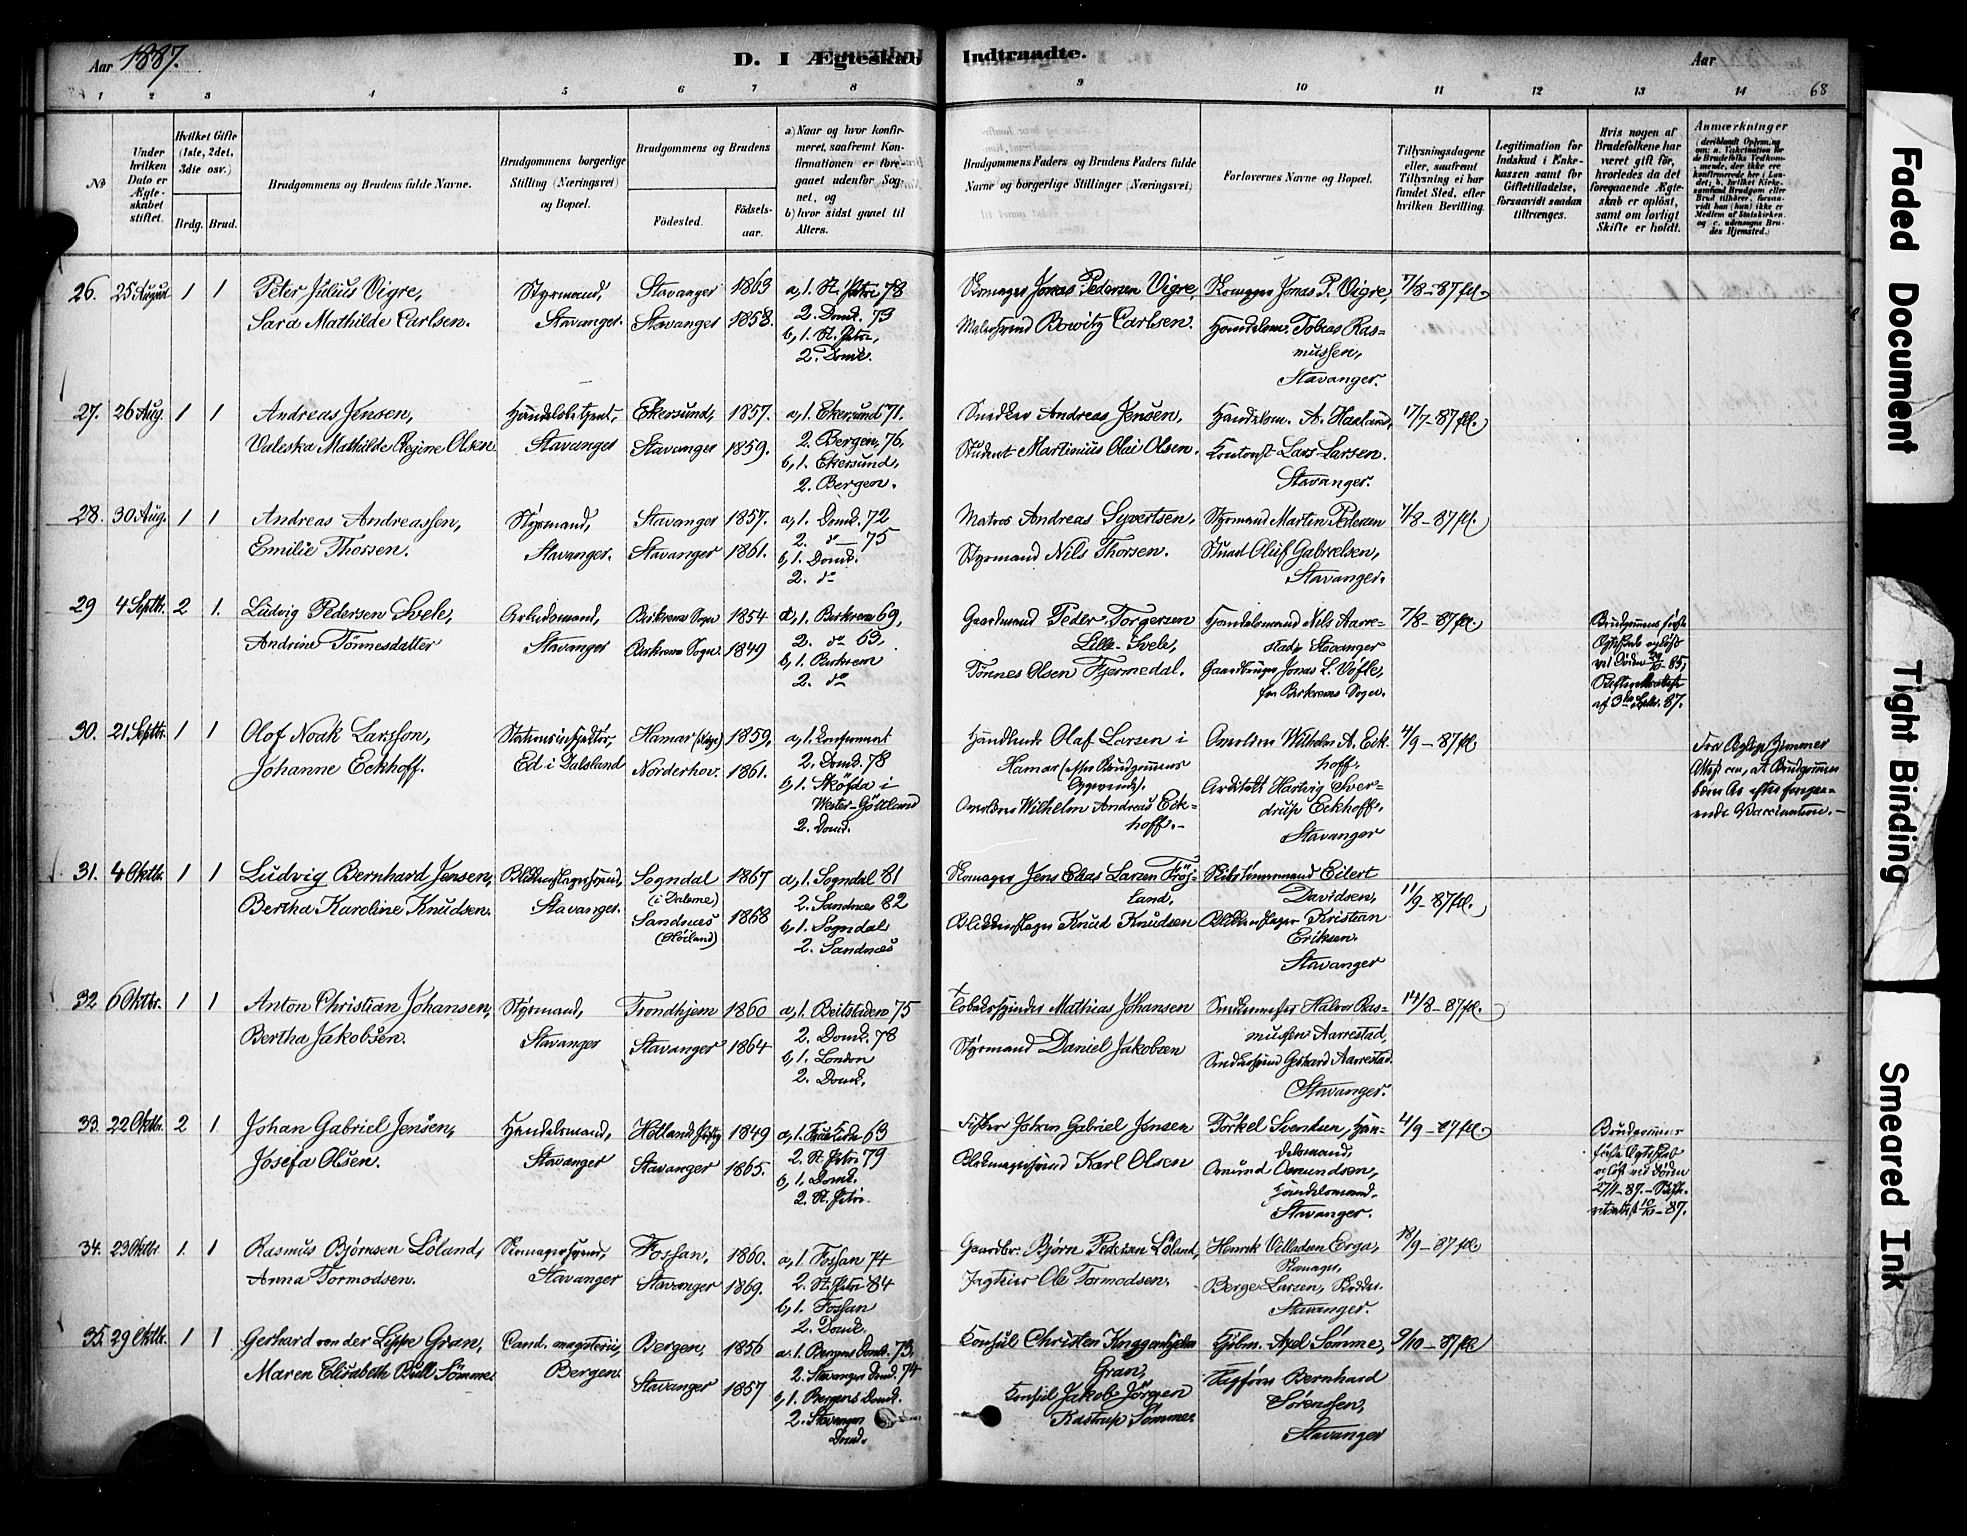 Aar 1887.
D. I Ægteskab Indtraadte.
Aar
1 2 3 4 5 6 7 8 9 10 11 12 13 14 68
No
Under hvilken Dato er Ægteskabet stiftet.
Hvilket Gifte (1ste, 2det, 3die osv.)
Brdg. Brud.
Brudgommens og Brudens fulde Navne.
Brudgommens borgerlige Stilling (Næringsvei) og Bopæl.
Brudgommens og Brudens
Fødested.
Fødselsaar.
a) Naar og hvor konfirmeret, saafremt Konfirmationen er foregaaet udenfor Sognet, og
b) hvor sidst gaaet til Alters.
Brudgommens Faders og Brudens Faders fulde Navne og borgerlige Stillinger (Næringsvei)
Forlovernes Navne og Bopæl.
Tillysningsdagene eller, saafremt Tillysning ei har fundet Sted, efter hvilken Bevilling.
Legitimation for Indskud i Enkekassen samt for Giftetilladelse, forsaavidt saadan tiltrænges.
Hvis nogen af Brudefolkene har været gift før, hvorledes da det foregaaende Ægteskab er opløst, samt om lovligt Skifte er holdt.
Anmærkninger
26. 25 August 1 1
Peter Julius Vigre,
Sara Mathilde Carlsen.
Styrmand,
Stavanger.
Stavanger 1863
Stavanger 1858.
a, 1. St. Petri 78
2. Domk. 73
b, 1. St. Petri,
2. Domk.
Skomager Jonas Pedersen Vigre,
Malersvend Bowitz Carlsen.
Skomager Jonas P. Vigre,
Handelsm. Tobias Rasmussen,
Stavanger.
7/8 – 87 fl.
27. 26 Aug. 1 1
Andreas Jensen,
Valeska Mathilde Regine Olsen
Handelsbetjent,
Stavanger
Ekersund, 1857.
Stavanger 1859.
a, 1. Ekersund 71.
2. Bergen, 76.
b, 1. Ekersund,
2. Bergen.
Snedker Andreas Jensen,
Student Martinius Olai Olsen.
Handelsm. A. Haaland,
Kontorist Lars Larsen.
Stavanger.
17/7 – 87 fl.
28. 30 Aug. 1 1
Andreas Andreassen,
Emilie Thorsen.
Styrmand,
Stavanger.
Stavanger 1857.
Stavanger 1861.
a, 1. Domk. 72
2. do – 75
b, 1. Domk.
2. do
Matros Andreas Syvertsen,
Styrmand Nils Thorsen.
Styrmand Martin Pedersen
Stuad Oluf Gabrielsen,
Stavanger.
7/8 – 87 fl.
29 4 Septbr. 2 1.
Ludvig Pedersen Svele,
Andrine Tönnesdatter
Arbeidsmand,
Stavanger
Birkrems Sogn 1854
Birkrems Sogn. 1849
a, 1. Birkrem 69,
2. do 63,
b, 1. Birkrem
2. do
Gaardmand Peder Torgersen
Lille-Svele,
Tönnes Olsen Fjermedal.
Handelsmand Nils Aarrestad, Stavanger
Gaardbruger Jonas L. Vöfle,
fra Birkrems Sogn.
7/8 – 87 fl.
Brudgommens förste
Ægteskab oplöst
ved Döden 29/10 – 85;
Skifteretsattest
af 3die Septbr. 87.
30. 21 Septbr. 1 1
Olof Noak Larsson,
Johanne Eckhoff.
Stationsinspektör,
Ed i Dalsland
Hamar (Norge) 1859,
Norderhov. 1861.
a, 1. Confirmeret
2. Domk. 78
b, 1. Sköfda i
Wester-Göttland
2. Domk.
Handlende Olaf Larsen i
Hamar (efter Brudgommens
Opgivende).
Overlærer Wilhelm Andreas Eckhoff.
Overlærer Wilhelm A. Eckhoff,
Arkitekt Hartvig Sverdrup Eckhoff,
Stavanger
4/9 – 87 fl.
Attest om, at Brudgommen
bærer Ar efter foregaaende Vaccination.
31. 4 Oktbr. 1 1
Ludvig Bernhard Jensen,
Bertha Karoline Knudsen.
Blikkenslagersvend,
Stavanger.
Sogndal 1867
(i Dalerne)
Sandnæs 1868
(Höiland)
a, 1. Sogndal 81
2. Sandnes 82
b, 1. Sogndal
2. Sandnæs
Skomager Jens Elias Larsen Frösland,
Blikkenslager Knud Knudsen
Skibstömmermand Eilert
Davidsen,
Blikkenslager Kristian
Eriksen.
Stavanger
11/9 – 87 fl.
32 6 Oktbr. 1 1
Anton Christian Johansen,
Bertha Jakobsen.
Styrmand,
Stavanger
Trondhjem 1860
Stavanger 1864
a, 1. Beitstaden 75
2. Domk. 78
b, 1. London
2. Domk.
Tobaksspinder Mathias Johansen
Styrmand Daniel Jakobsen
Snedkermester Halvor Rasmussen Aarrestad,
Snedkersvend Gerhard Aarrestad.
Stavanger.
14/8 – 87 fl.
33. 22 Oktbr. 2 1
Johan Gabriel Jensen,
Josefa Olsen.
Handelsmand,
Stavanger
1849
Stavanger 1865.
63
2. St. Petri 79
b, 1. Domk.
2. St. Petri.
Fisker Johan Gabriel Jensen
Blokmagersvend Karl Olsen
Torkel Svendsen, Handelsmand,
Omund Omundsen,
Handelsmand,
Stavanger.
4/9 – 87 fl.
Brudgommens
förste Ægteskab
oplöst ved Döden
27/1 – 87. – Skifteretsattest 10/10 – 87.
34. 23 Oktbr 1. 1
Rasmus Björnsen Löland,
Anna Tormodsen.
Skomagersvend,
Stavanger
Fossan, 1860.
Stavanger 1869.
a, 1. Fossan 74
2. St. Petri 84
b, 1. Fossan
2. Domk.
Gaardbr. Björn Pedersen Löland,
Jagteier Ole Tormodsen.
Henrik Villadsen Erga,
Skomager,
Berge Larsen, Bödker.
Stavanger.
18/9 – 87 fl.
35. 29 Oktbr. 1 1
Gerhard von der Lippe Gran,
Maren Elisabeth Bull Sömme.
Cand. magisterii,
Bergen.
Bergen, 1856
Stavanger 1857
a. 1 Bergens Domk. 73.
2. Stavanger Domk. 74
b, 1. Bergens Domk.
2. Stavanger
Domk.
Konsul Christen Knagenhjelm
Gran,
Konsul Jakob Jörgen
Kastrup Sömme.
Kjöbm. Axel Sömme,
Sagförer Bernhard
Sörenssen,
Stavanger
9/10 – 87 fl.
Faded Document
Tight Binding
Smeared Ink